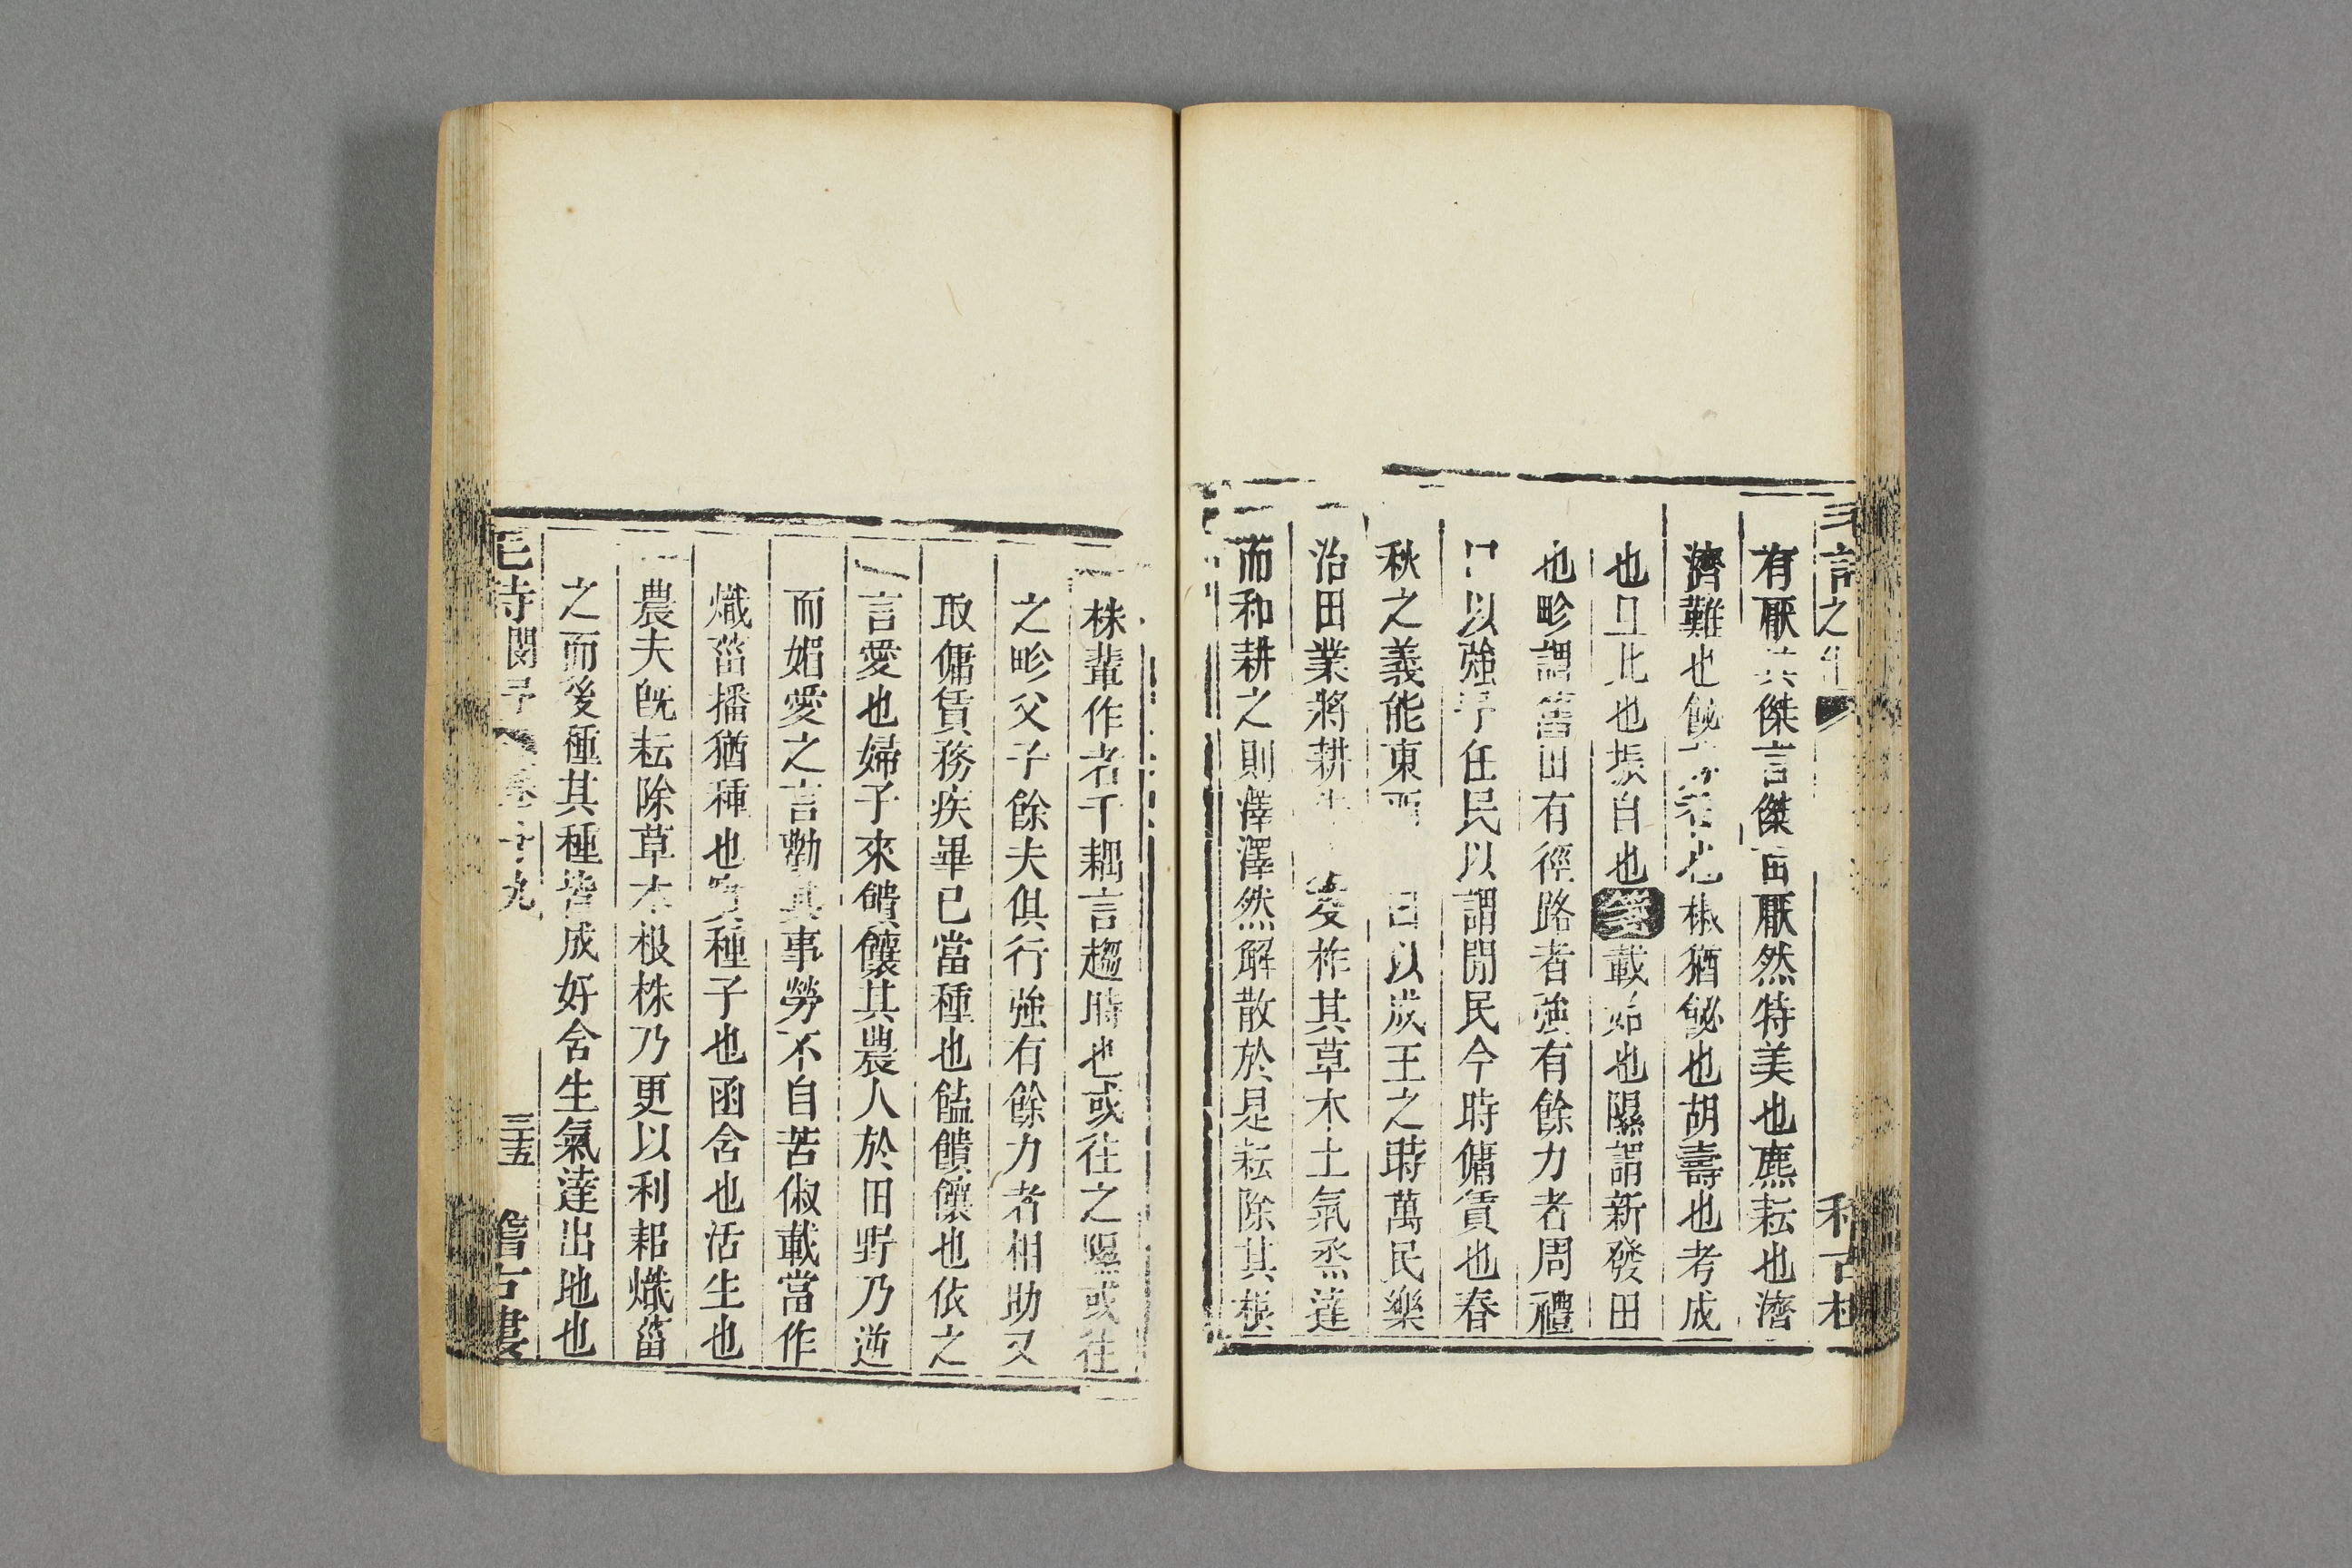 有厭其傑言傑苗厭然特美也麃耘也濟
濟難也飶 椒猶飶也胡壽也考成
也且此也振自也箋載始也隰謂新發田
也畛謂舊田有徑路者強有餘力者周禮
以強予任民以謂閒民今時傭賃也春
秋之義能東西 曰以成王之時萬民樂
治田業將耕 芟柞其草木土氣烝達
而和耕之則澤澤然解散於是耘除其根
株輩作者千耦言趨時也或往之隰或往
之畛父子餘夫俱行強有餘力者相助又
取傭賃務疾畢已當種也饁饋饟也依之
言愛也婦子來饋饟其農人於田野乃逆
而媚愛之言勸其事勞不自苦俶載當作
熾菑播猶種也實種子也函含也活生也
農夫旣耘除草木根株乃更以利耜熾菑
之而後種其種皆成好含生氣達出地也
毛詩閔予 卷十九 三五 稽古樓